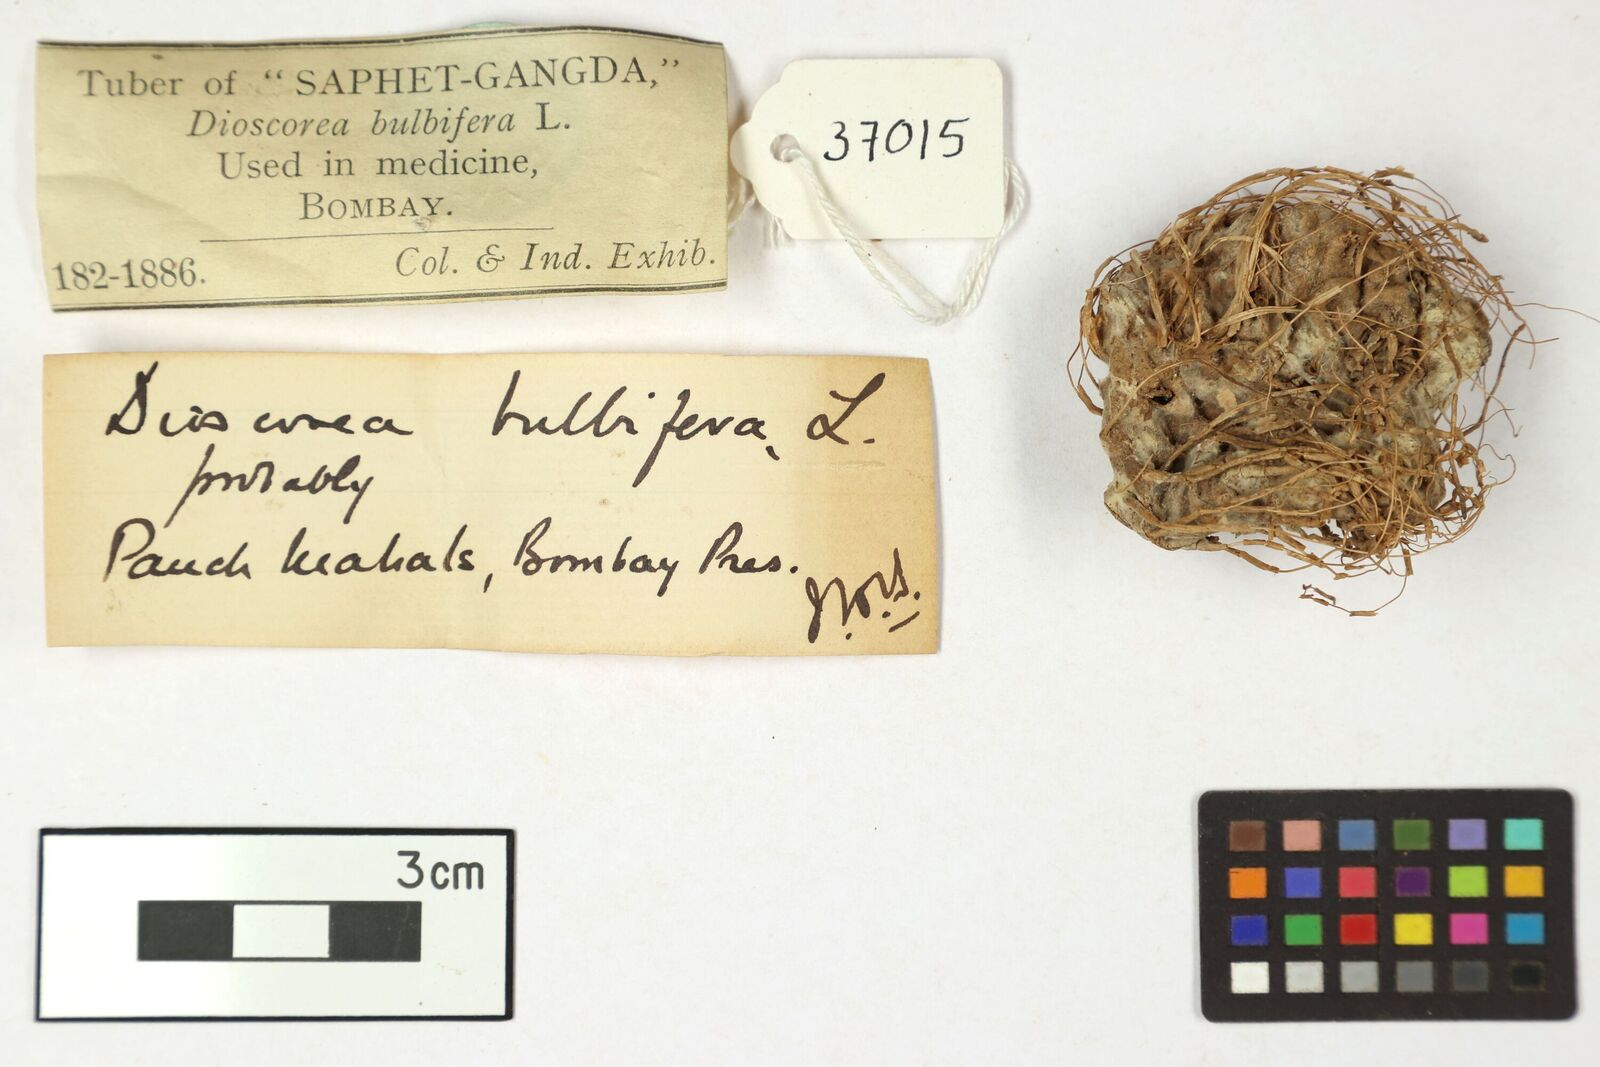 Tuber of "SAPHET-GANGDA,"
Dioscorea bulbifera L.
Used in medicine,
BOMBAY.
182-1886. Col. & Ind. Exhib.
37015
Dioscorea bulbifera, L.
probably
Panch Mahals, Bombay Pres.
3cm